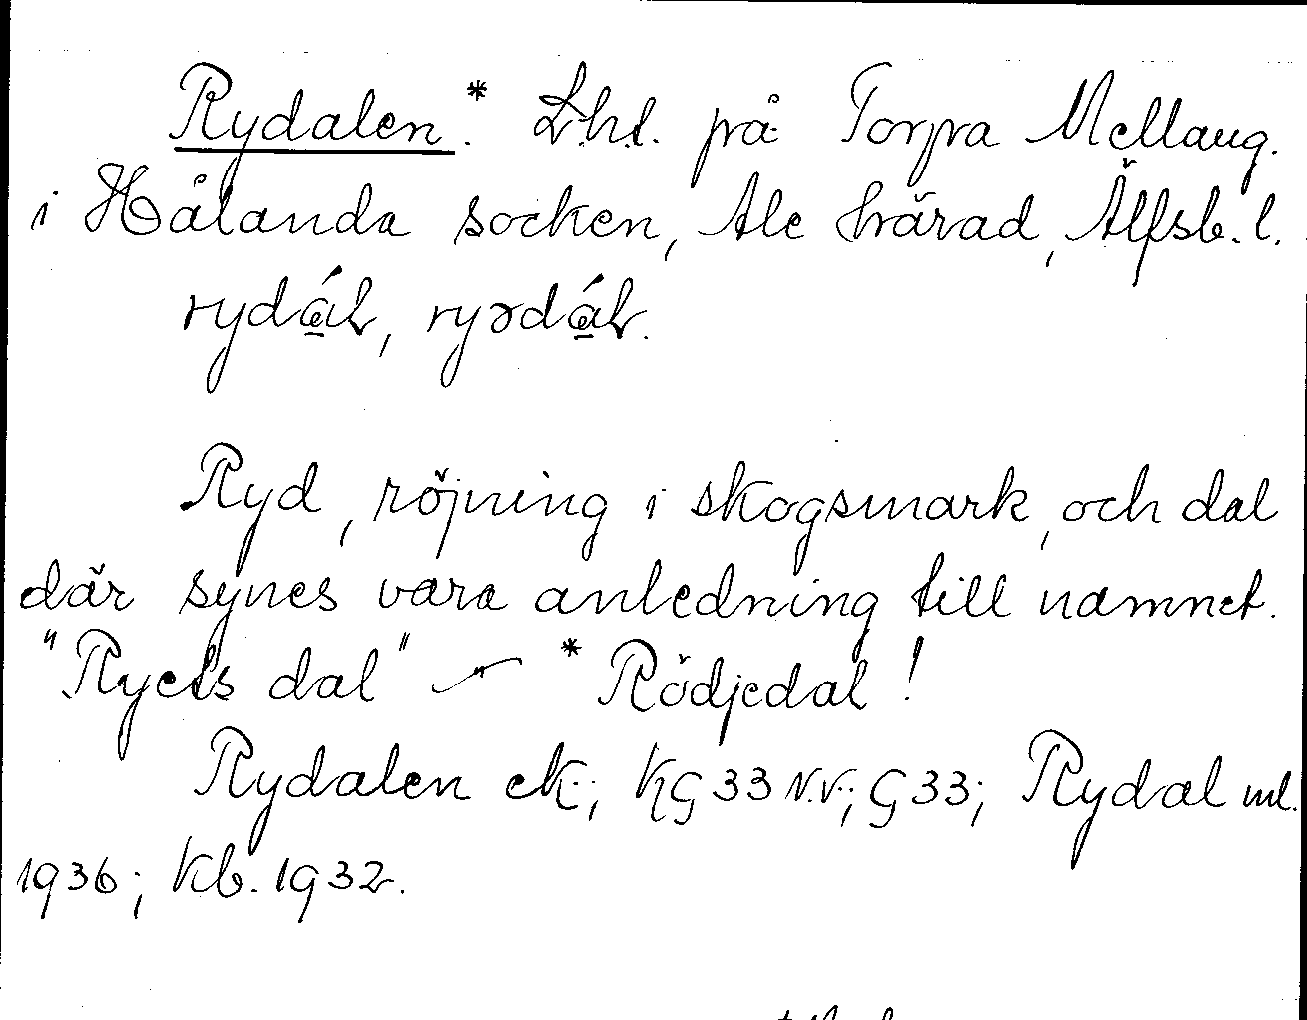 Rydalen.* L.h.l. på Torpa Mellang.
i Hålanda socken, Ale härad, Älfsb. l.
rydál, ryədál.
Ryd, röjning i skogsmark, och dal
där synes vara anledning till namnet.
"Ryets dal" – * Rödjedal!
Rydalen ek; KG 33 N.V.; G 33; Rydal ml.
1936; Kb. 1932.